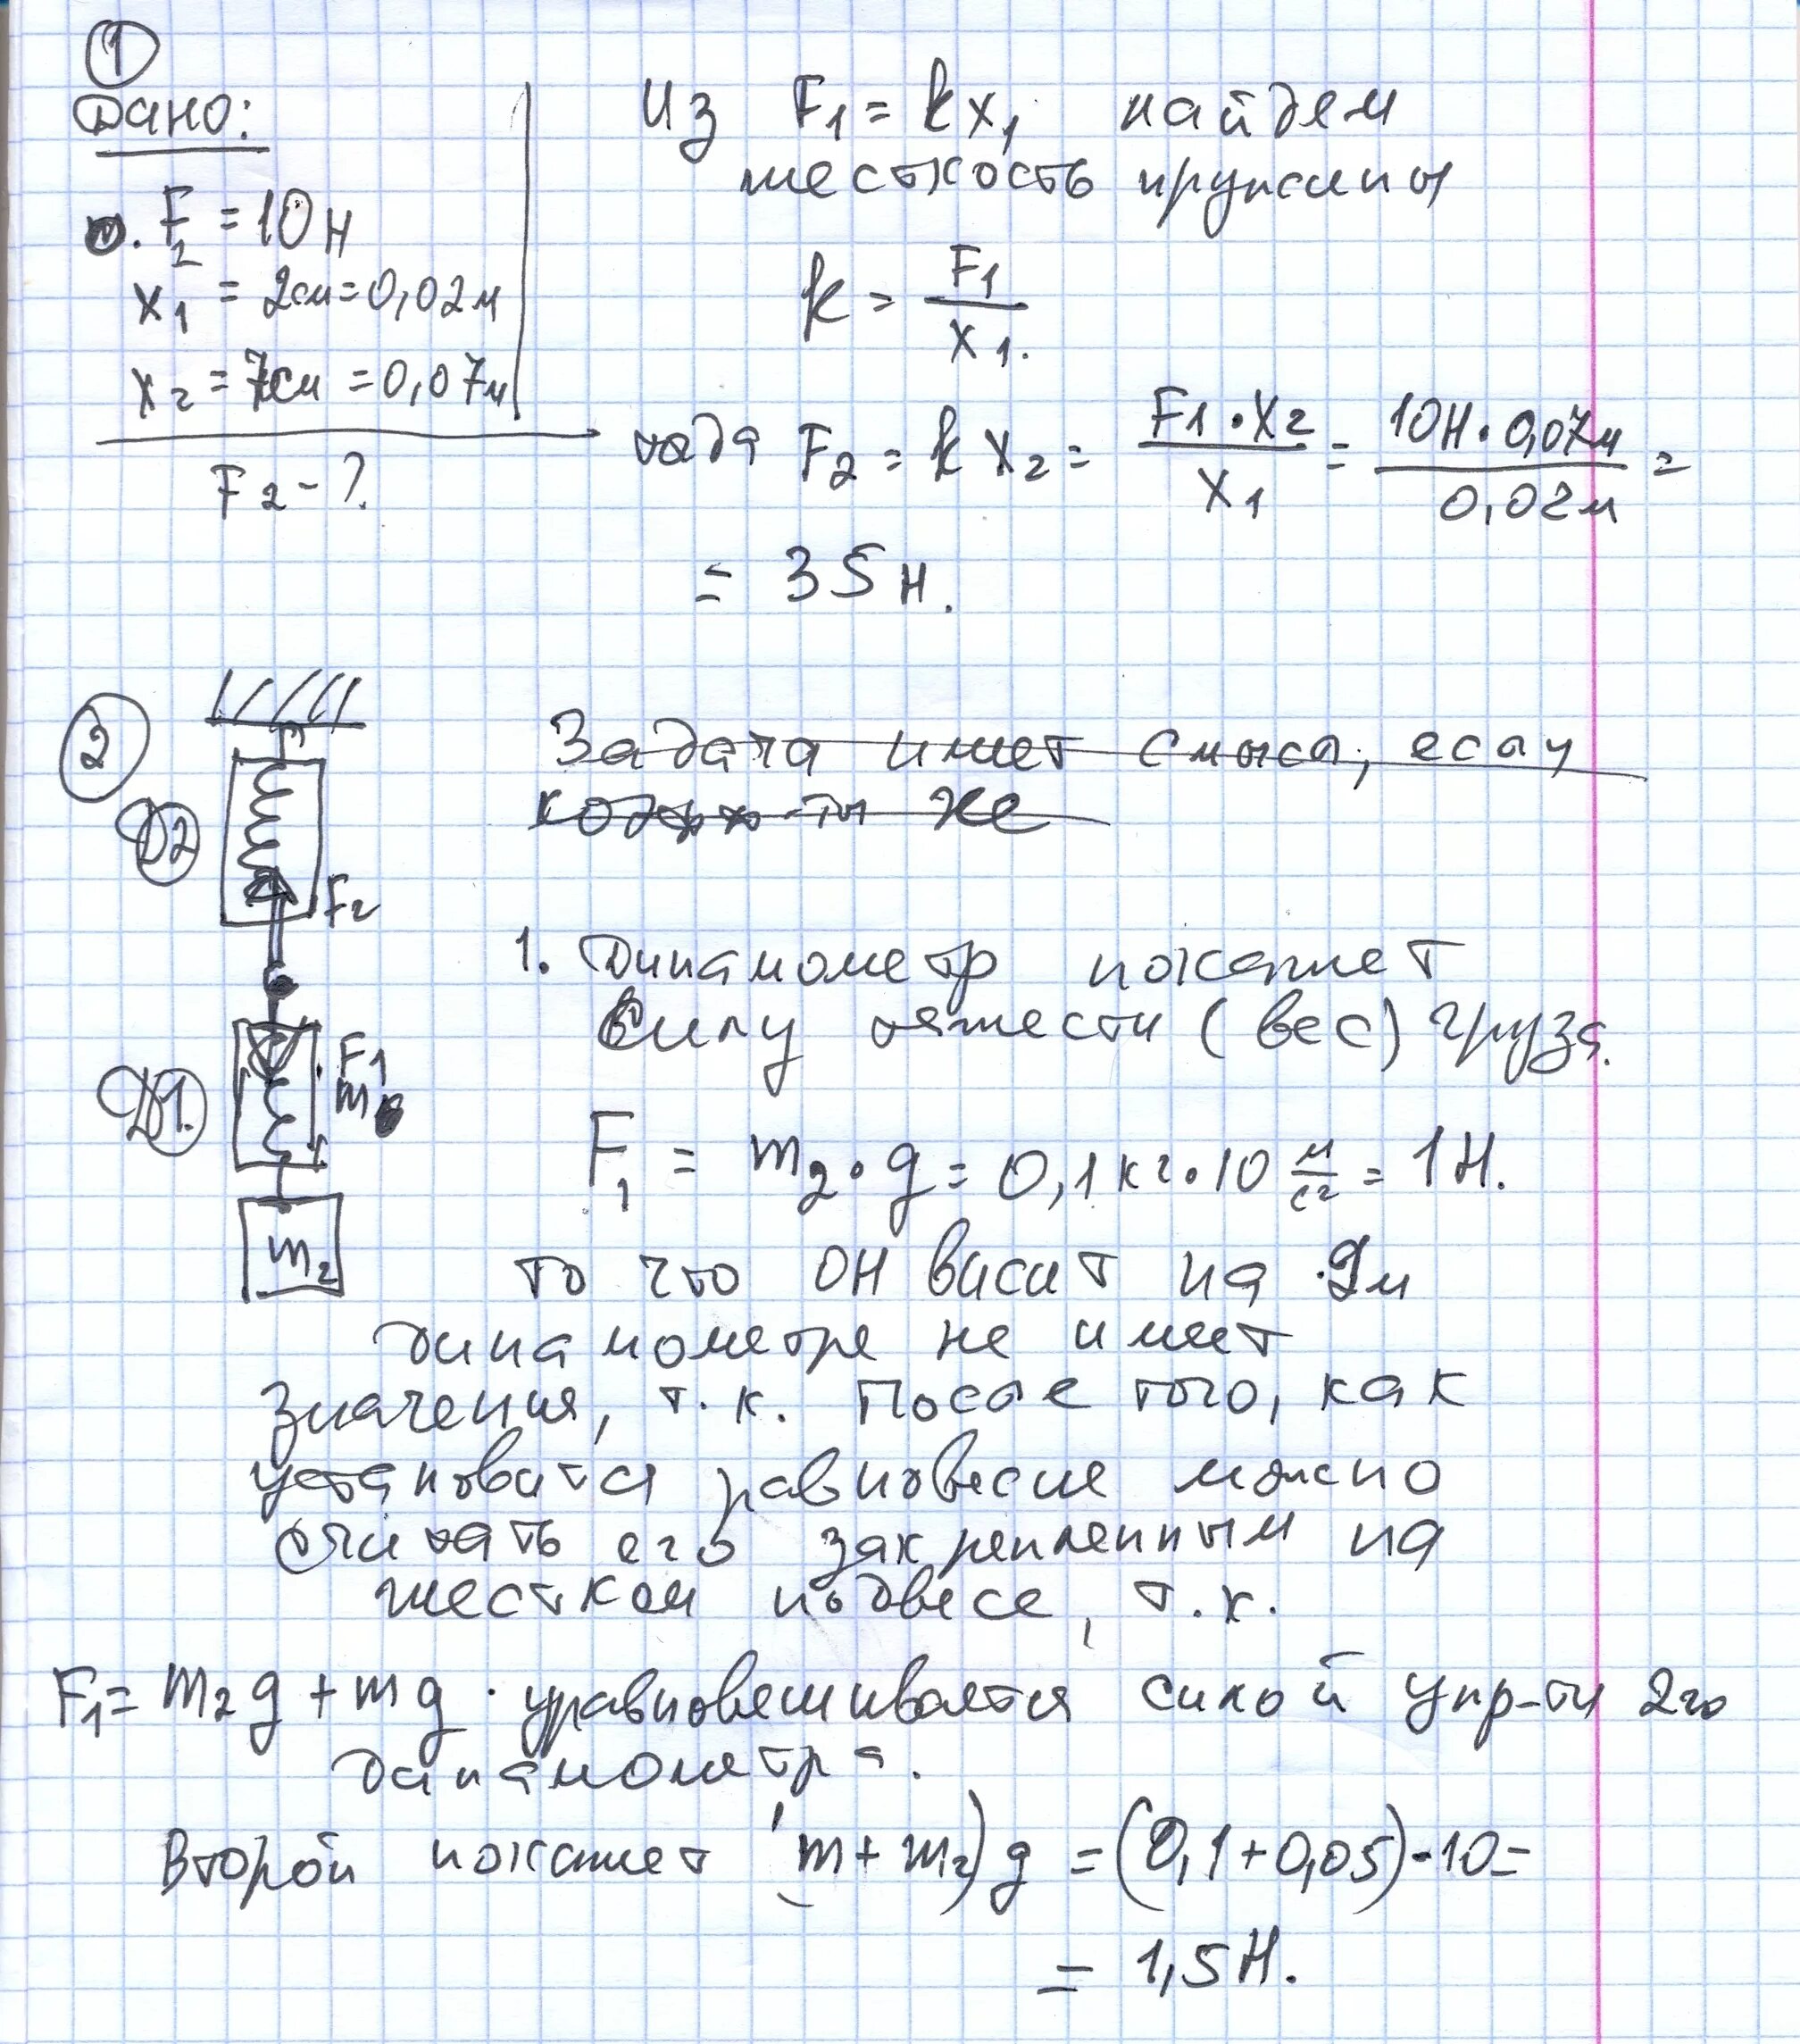 1
Дано:
F2 = 10 Н
x1 = 2см = 0,02м
x2 = 7см = 0,07м
F2 - ?
Из F1 = kx1 найдем
жесткость пружины
k = F1/x1.
тогда F2 = k x2 = F1·x2/x1 = 10Н·0,07м/0,02м =
= 35 Н.
2
Задача имеет смысл, если
же
Д2
F2
Д1.
F1
m
m2
1. Динамометр покажет
силу тяжести (вес) груза.
F1 = m2·g = 0,1кг·10 м/с2 = 1Н.
то что он висит на 2м
динамометре не имеет
значения, т.к. после того, как
установится равновесие можно
считать его закрепленным на
жестком подвесе, т.к.
F1 = m2g + mg уравновешивается силой упр-ти 2го
динамометра.
Второй покажет (m+m2)g = (0,1+0,05)·10=
= 1,5Н.